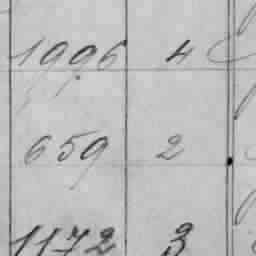 1996 4
659 2
1172 3